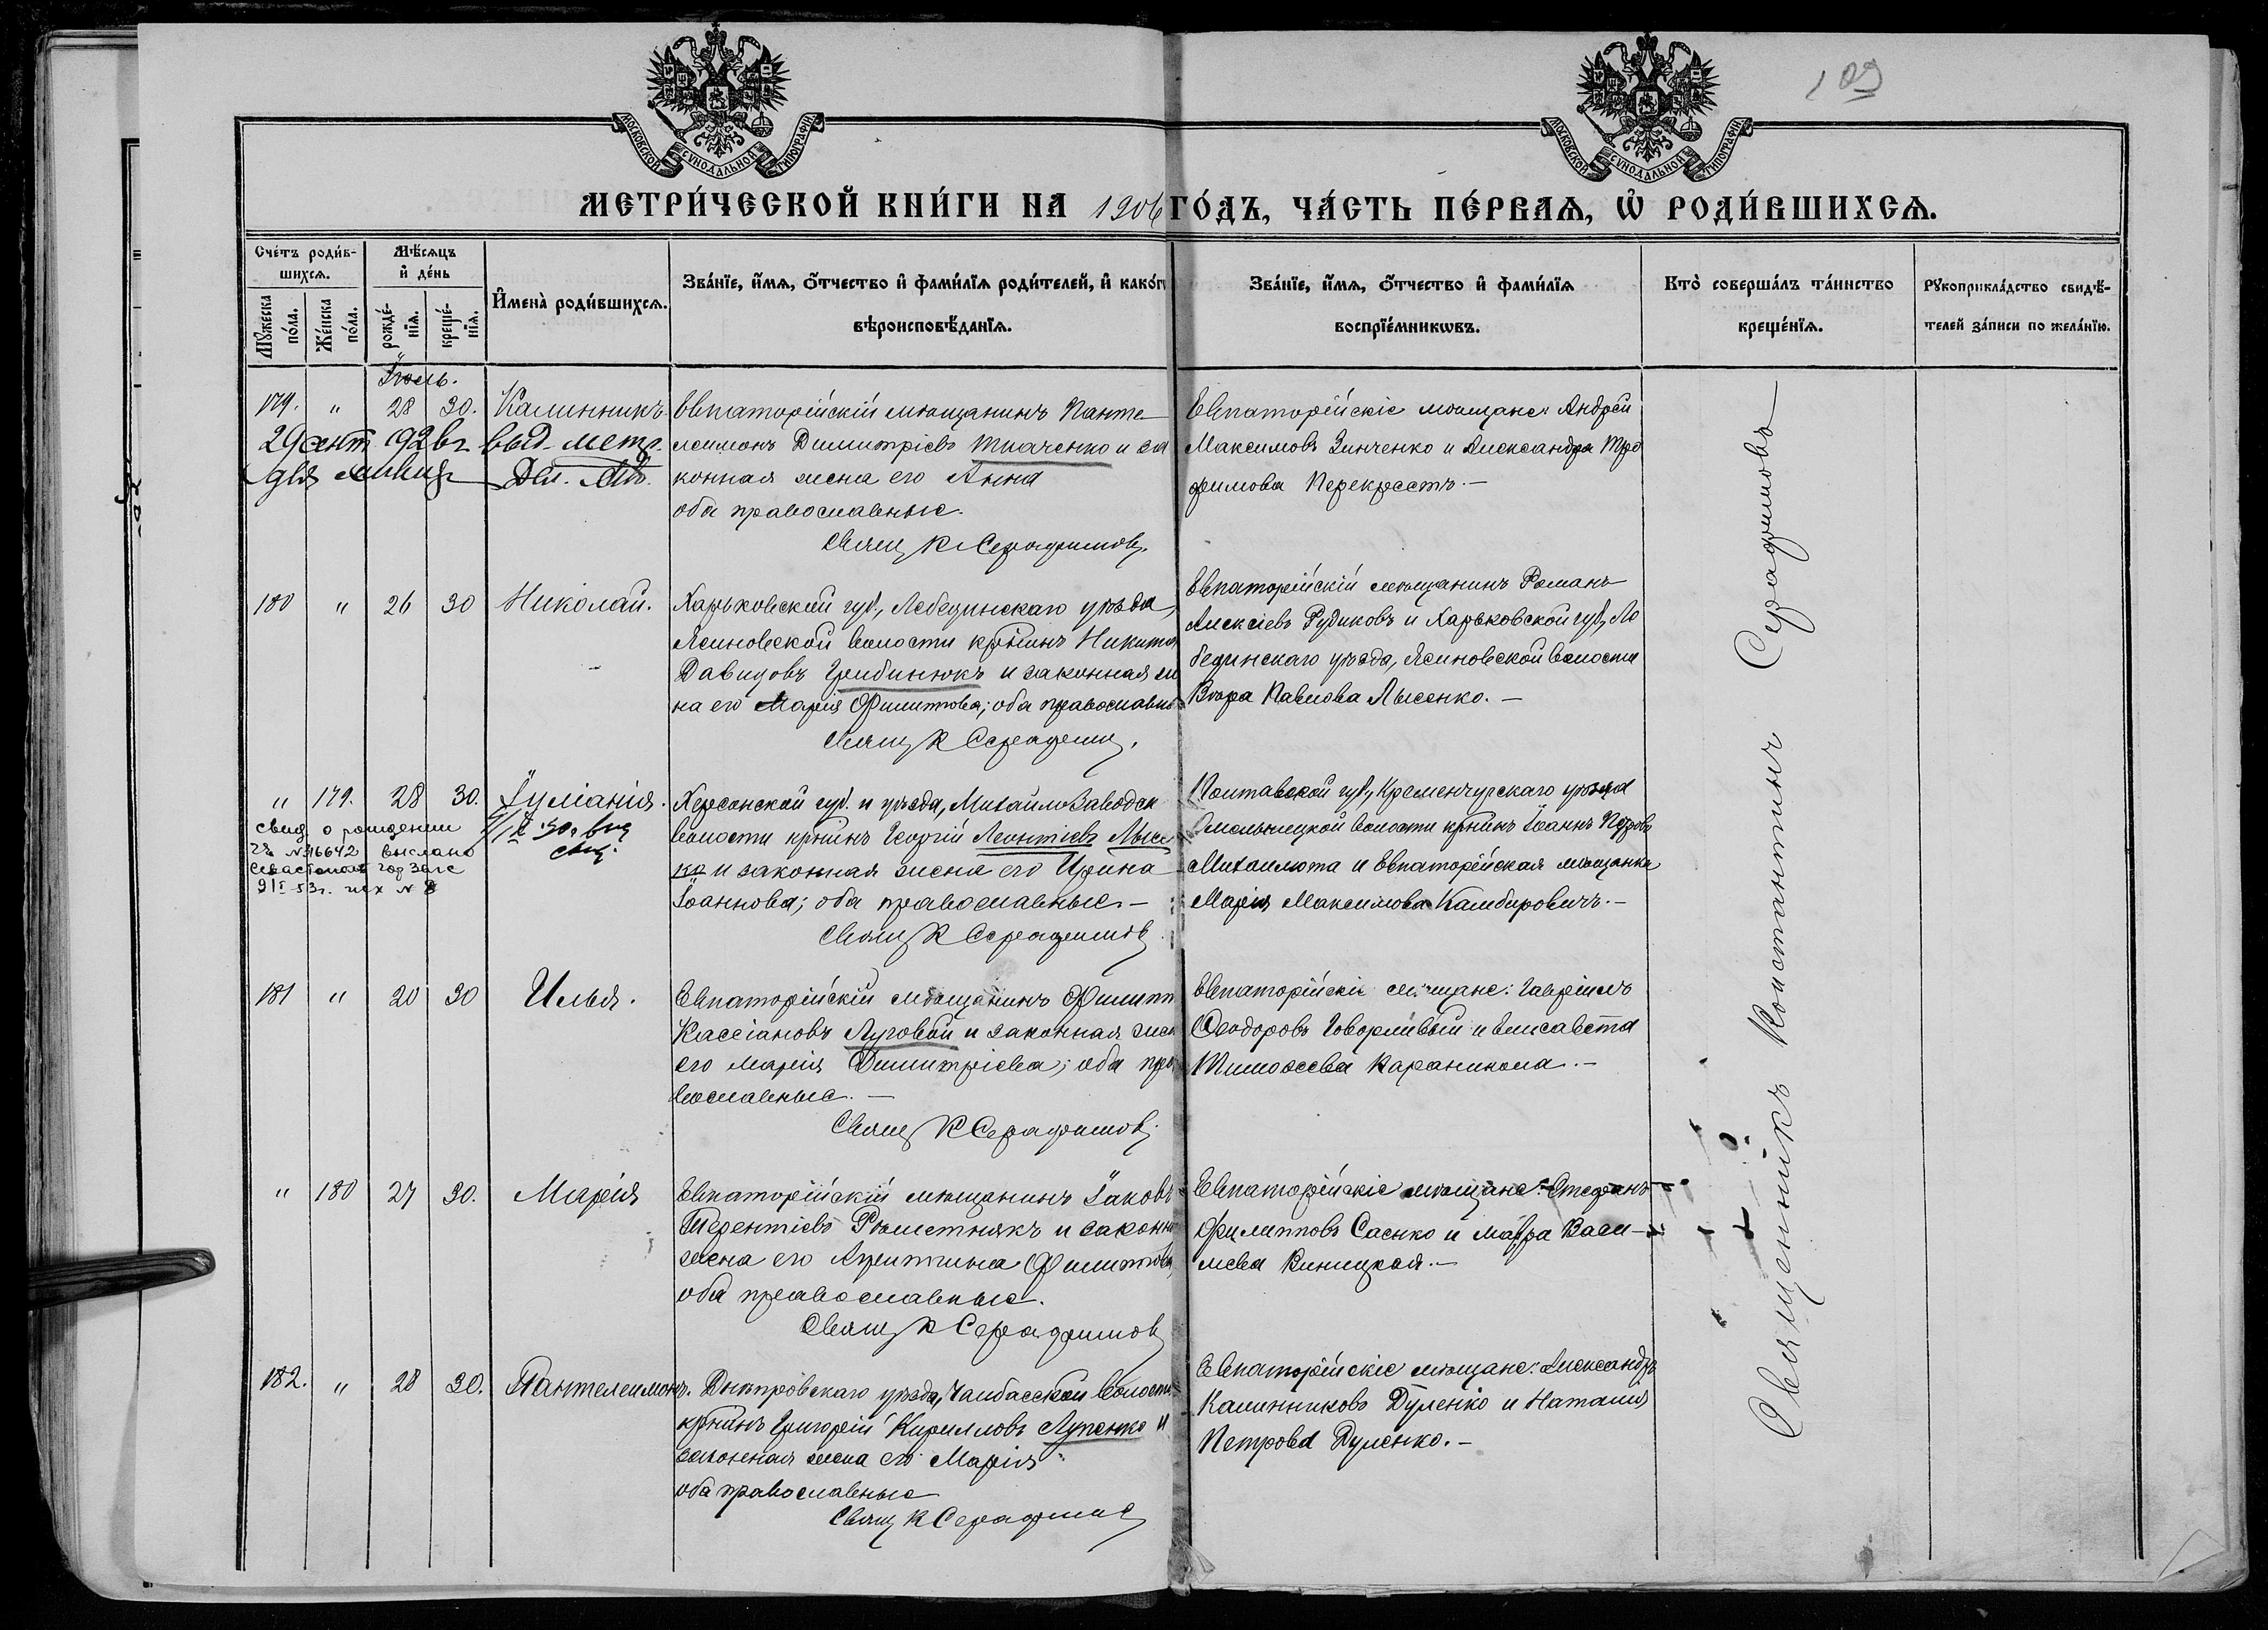 109
МОСКОВСКОЙ СѴНОДАЛЬНОЙ ТИПОГРАФІИ
МОСКОВСКОЙ СѴНОДАЛЬНОЙ ТИПОГРАФІИ
МЕТРИ́ЧЕСКОЙ КНИ́ГИ НА 1906 ГО́ДЪ, ЧА́СТЬ ПЕ́РВАѦ, Ѡ҆ РОДИ́ВШИХСѦ.
Сче́тъ роди́в-
шихсѧ.
Мꙋ́жеска по́ла.
Же́нска по́ла.
Мѣ́сѧцъ
и҆ де́нь
рожде́-нїѧ.
креще́-нїѧ.
И҆мена̀ роди́вшихсѧ.
Зва́нїе, и҆́мѧ, ѻ҆́тчество и҆ фами́лїѧ роди́телей, и҆ како́гѡ
вѣроисповѣ́данїѧ.
Зва́нїе, и҆́мѧ, ѻ҆́тчество и҆ фами́лїѧ
воспрїе́мниковъ.
Кто̀ соверша́лъ та́инство
креще́нїѧ.
Рꙋкоприкла́дство свидѣ́-
телей за́писи по жела́нїю.
Іюль.
179. " 28 30. Калинникъ.
Евпаторійскій мѣщанинъ Панте-
леимонъ Димитріевъ Ткаченко и за
конная жена его Анна
оба православные.
Свящ К Серафимовъ.
Евпаторійскіе мѣщане: Андрей
Максимовъ Зинченко и Александра Тро
фимова Перекрестъ.—
29 сент 192 г. выд. метр.
для
180 " 26 30 Николай.
Харьковской губ., Лебединскаго уѣзда,
Ясиновской волости кр̃нинъ Никита
Давидовъ Грибинюкъ и законная же
на его Марія Филиппова; оба православн
Свящ К Серафим.
Евпаторійскій мѣщанинъ Романъ
Алексіевъ Рудиковъ и Харьковской губ, Ле
бединскаго уѣзда, Ясиновской волости
Вѣра Павлова Лысенко.—
" 179. 28 30. Іуліанія.
свид. о рождении
выслано
Севастополь гор загс
9/I-53г. исх № 8
Херсонской губ. и уѣзда, Михайло Заводск
волости кр̃нинъ Георгій Леонтіевъ Лысе
ко и законная жена его Ирина
Іоаннова; оба православные—
Свящ К Серафимов
Полтавской губ, Кременчугскаго уѣзда
Омельницкой волости кр̃нинъ Іоаннъ Петровъ
Михаилюта и Евпаторійская мѣщанка
Марія Максимова Камбировичъ.—
181 " 20 30 Илья.
Евпаторійскій мѣщанинъ Филипп
Кассіановъ Луговой и законная жен
его Марія Димитріева; оба пра
вославные.—
Свящ К Серафимов.
Евпаторійскіе мѣщане: Гавріилъ
Ѳеодоровъ Говорливый и Елисавета
Тимоѳеева Караникола.—
" 180 27 30. Марія
Евпаторійскій мѣщанинъ Іаковъ
Терентіевъ Рѣшетнякъ и законн
жена его Филиппова,
оба православные.
Свящ К Серафимов
Евпаторійскіе мѣщане: Стефанъ
Филипповъ Саенко и Мавра Васи—
льева Виницкая.—
182. " 28 30. Пантелеимонъ.
Днѣпровскаго уѣзда, Чалбасской волости
кр̃нинъ Григорій Кирилловъ Лупенко и
законная жена его Марія
оба православные
Свящ К Серафимов
Евпаторійскіе мѣщане: Александръ
Калинниковъ Дуленко и Наталія
Петрова Дуленко.—
Священникъ Константинъ Серафимовъ